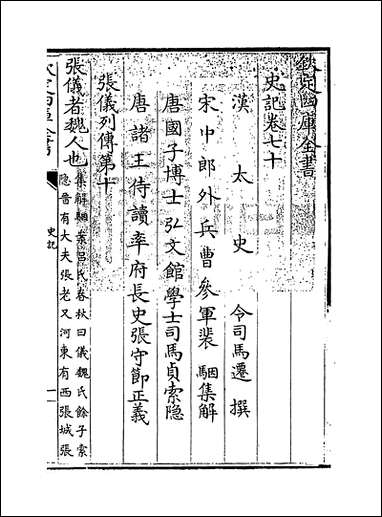 欽定四庫全書
史記卷七十
漢太史令司馬遷撰
宋中郎外兵曹參軍裴駰集解
唐國子博士弘文館學士司馬貞索隐
唐諸王侍讀率府長史張守節正義
張儀列傳第十
張儀者魏人也
集解駰案吕氏春秋曰儀魏氏餘子索
隐晉有大夫張老又河東有西張城張
欽定四庫全書
史記
一